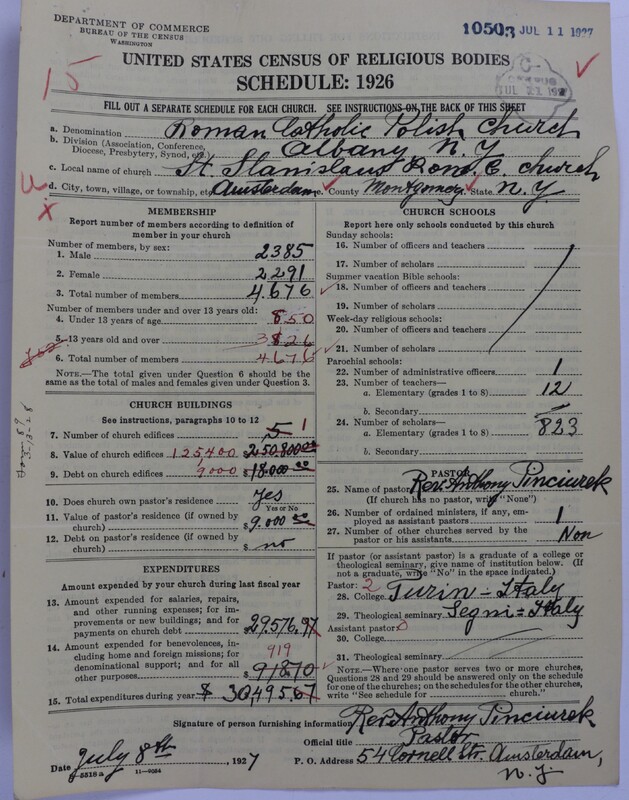 DEPARTMENT OF COMMERCE
BUREAU OF THE CENSUS
WASHINGTON
10503 JUL 11 1927
15
UNITED STATES CENSUS OF RELIGIOUS BODIES
SCHEDULE: 1926
FILL OUT A SEPARATE SCHEDULE FOR EACH CHURCH. SEE INSTRUCTIONS ON THE BACK OF THIS SHEET
a. Denomination Roman Catholic Polish Church
b. Division (Association, Conference, Diocese, Presbytery, Synod, etc.) Albany N.Y.
c. Local name of church St. Stanislaus Rom. C. church
d. City, town, village, or township, etc. Amsterdam County Montgomery State N.Y.
MEMBERSHIP
Report number of members according to definition of
member in your church
Number of members, by sex:
1. Male 2385
2. Female 2291
3. Total number of members 4.676
Number of members under and over 13 years old:
4. Under 13 years of age 850
5. 13 years old and over 3826
6. Total number of members 4676
NOTE.—The total given under Question 6 should be
the same as the total of males and females given under Question 3.
CHURCH BUILDINGS
See instructions, paragraphs 10 to 12
7. Number of church edifices 5 1
8. Value of church edifices 125,400 $250.800.00
9. Debt on church edifices 9000 $18.000.00
10. Does church own pastor's residence Yes
Yes or No
11. Value of pastor's residence (if owned by
church) $9.000.00
12. Debt on pastor's residence (if owned by
church) $ no
EXPENDITURES
Amount expended by your church during last fiscal year
13. Amount expended for salaries, repairs,
and other running expenses; for im-
provements or new buildings; and for
payments on church debt 29.576,97
14. Amount expended for benevolences, in-
cluding home and foreign missions; for
denominational support; and for all
other purposes 919 $918.70
15. Total expenditures during year $ 30,495.67
CHURCH SCHOOLS
Report here only schools conducted by this church
Sunday schools:
16. Number of officers and teachers
17. Number of scholars
Summer vacation Bible schools:
18. Number of officers and teachers
19. Number of scholars
Week-day religious schools:
20. Number of officers and teachers
21. Number of scholars
Parochial schools:
22. Number of administrative officers 1
23. Number of teachers—
a. Elementary (grades 1 to 8) 12
b. Secondary
24. Number of scholars—
a. Elementary (grades 1 to 8) 823
b. Secondary
PASTOR
25. Name of pastor Rev. Anthony Pinciurek
(If church has no pastor, write "None")
26. Number of ordained ministers, if any, em-
ployed as assistant pastors 1
27. Number of other churches served by the
pastor or his assistants Non
If pastor (or assistant pastor) is a graduate of a college or
theological seminary, give name of institution below. (If
not a graduate, write "No" in the space indicated.)
Pastor: 2
28. College Turin = Italy
29. Theological seminary Segni = Italy
Assistant pastor: 0
30. College
31. Theological seminary
NOTE.—Where one pastor serves two or more churches,
Questions 28 and 29 should be answered only on the schedule
for one of the churches; on the schedules for the other churches,
write "See schedule for church."
Signature of person furnishing information Rev. Anthony Pinciurek
Official title Pastor
Date July 8th, 1927 P. O. Address 54 Cornell Str. Amsterdam,
N.Y.
5518 a 11—9084